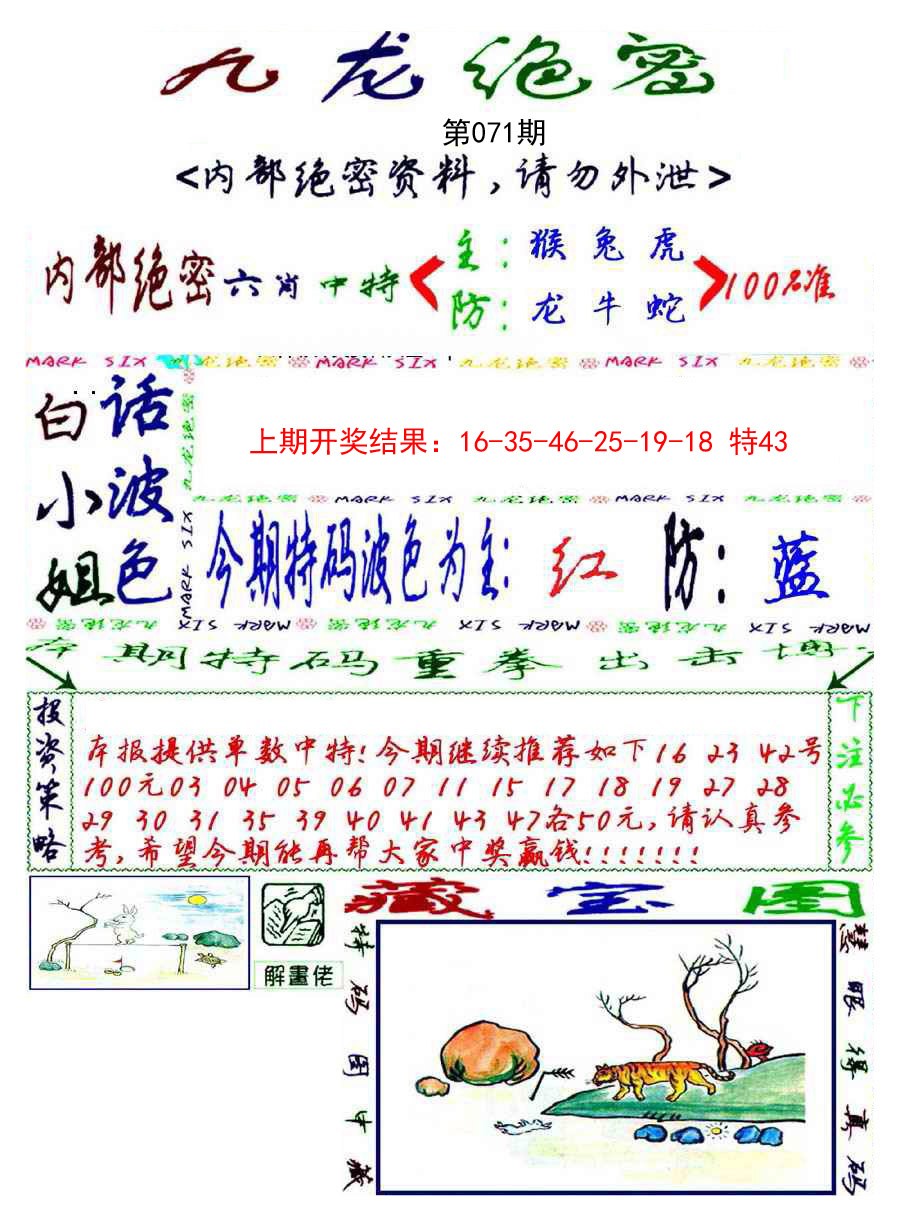 九龙绝密
第071期
<内部绝密资料,请勿外泄>
内部绝密六肖中特
主:猴兔虎
防:龙牛蛇
100%准
MARK SIX 九龙绝密 MARK SIX 九龙绝密 MARK SIX
白话
小波
姐色
九龙绝密
MARK SIX
上期开奖结果:16-35-46-25-19-18 特43
九龙绝密 MARK SIX 九龙绝密 MARK SIX 九龙绝密
今期特码波色为主:红 防:蓝
九龙绝密 MARK SIX 九龙绝密 MARK SIX 九龙绝密 MARK SIX
本期特码重拳出击
投资策略
本报提供单数中特!今期继续推荐如下16 23 42号
100元03 04 05 06 07 11 15 17 18 19 27 28
29 30 31 35 39 40 41 43 47各50元,请认真参
考,希望今期能再帮大家中奖赢钱!!!!!!!
下注必参
解畫佬
藏宝图
特码图中藏
慧眼得真码